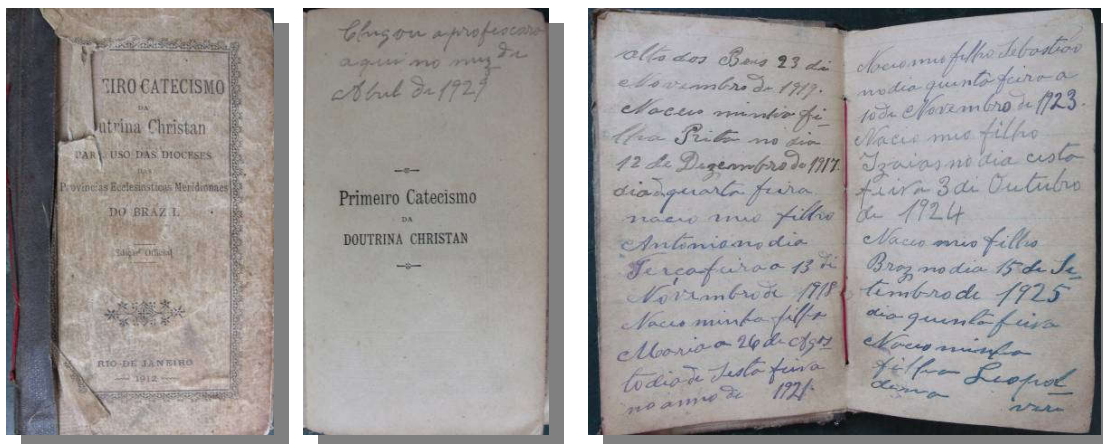 EIRO CATECISMO
DA
outrina Christan
PARA USO DAS DIOCESES
DAS
Provincias Ecclesiasticas Meridionaes
DO BRAZIL
Edição Official
RIO DE JANEIRO
1912
Chegou a profeçora
aqui no mez de
Abril de 1929
Primeiro Catecismo
DA
DOUTRINA CHRISTAN
alto dos Bois 23 di
Novembro de 1919.
Naceu minha fi-
lha Rita no dia
12 de Dezembro de 1917.
dia d quarta feira
naceu meu filho
Antonio no dia
Terça feira a 13 di
Novembro de 1918
Naceu minha filha
Maria a 26 de Agos
to dia de Sesta feira
no anno de 1921.
Naceu meu filho Sebastião
no dia quinta feira a
10 de Novembro de 1923.
Naceu meu filho
Izaias no dia cista
feira 3 di Outubro
de 1924
Naceu meu filho
Braz no dia 15 de Se
tembro de 1925
dia quinta feira
Naceu minha
filha Leopol
dina